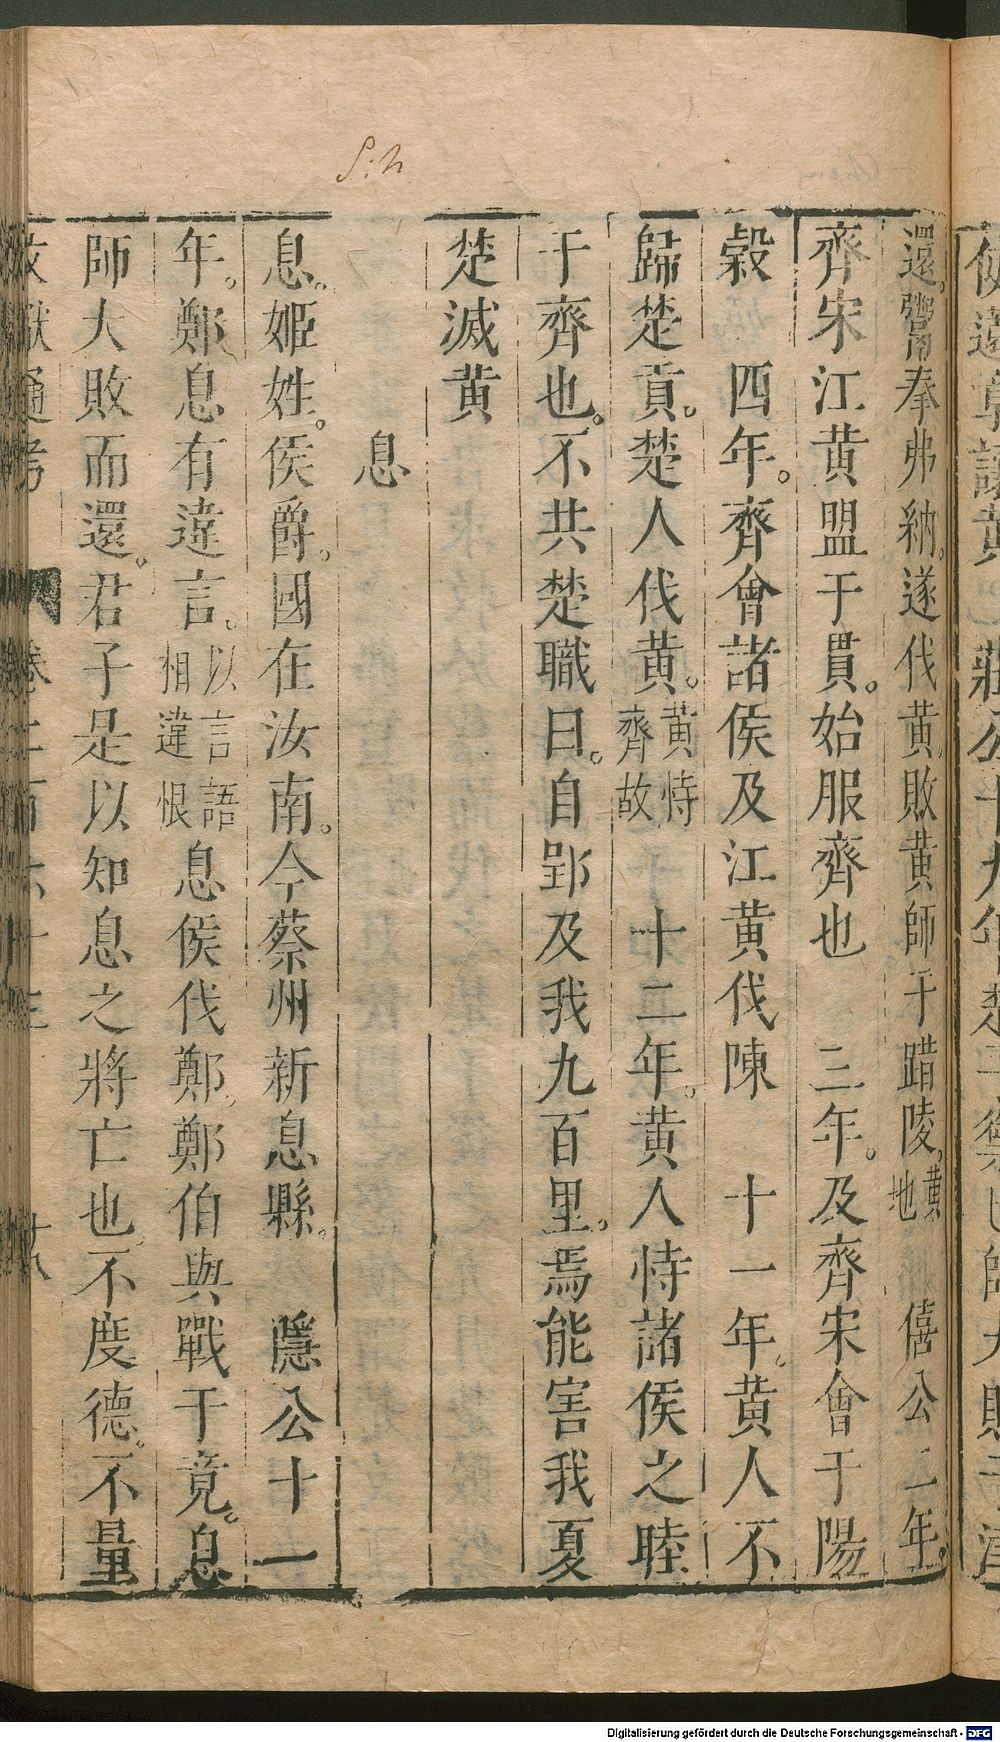 Sih
還。鬻拳弗納。遂伐黃敗黃師于踖陵。黃地 僖公二年。
齊宋江黃盟于貫。始服齊也 三年。及齊宋會于陽
穀 四年。齊會諸侯及江黃伐陳 十一年。黃人不
歸楚貢。楚人伐黃。黃恃齊故 十二年。黃人恃諸侯之睦
于齊也。不共楚職曰。自郢及我九百里。焉能害我夏
楚滅黃
息
息。姬姓。侯爵。國在汝南。今蔡州新息縣。 隱公十一
年。鄭息有違言。以言語相違恨 息侯伐鄭。鄭伯與戰于竟。息
師大敗而還。君子是以知息之將亡也。不度德。不量
文獻通考 卷二百六十三 十八
Digitalisierung gefördert durch die Deutsche Forschungsgemeinschaft - DFG